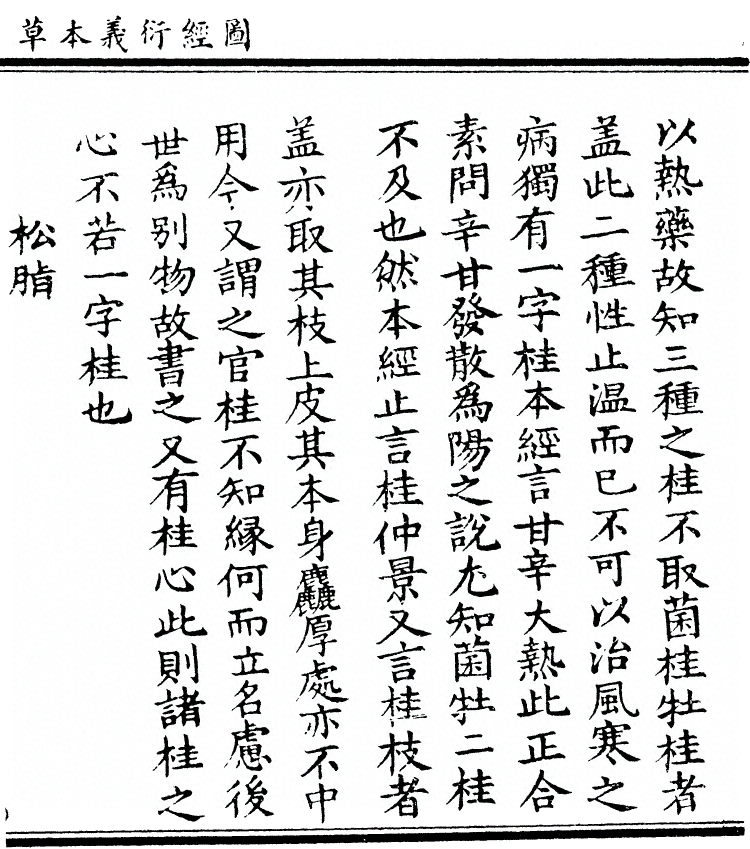 圖經衍義本草
以熱藥故知三種之桂不取菌桂牡桂者
盖此二種性止温而已不可以治風寒之
病獨有一字桂本經言甘辛大熱此正合
素問辛甘發散爲陽之說尤知菌牡二桂
不及也然本經止言桂仲景又言桂枝者
盖亦取其枝上皮其本身麤厚處亦不中
用今又謂之官桂不知緣何而立名慮後
世爲别物故書之又有桂心此則諸桂之
心不若一字桂也
松脂